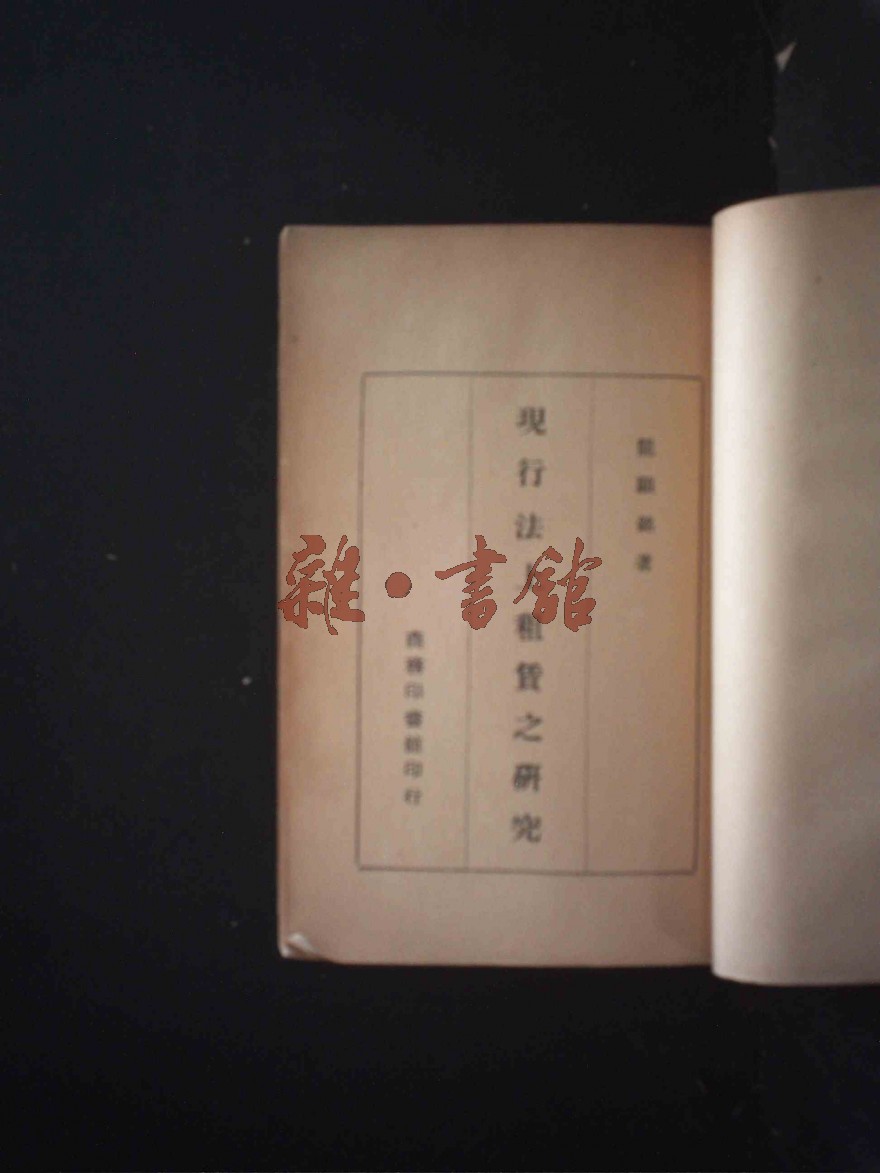 龍顯銘著
現行法上租賃之研究
商務印書館印行
雜·書館